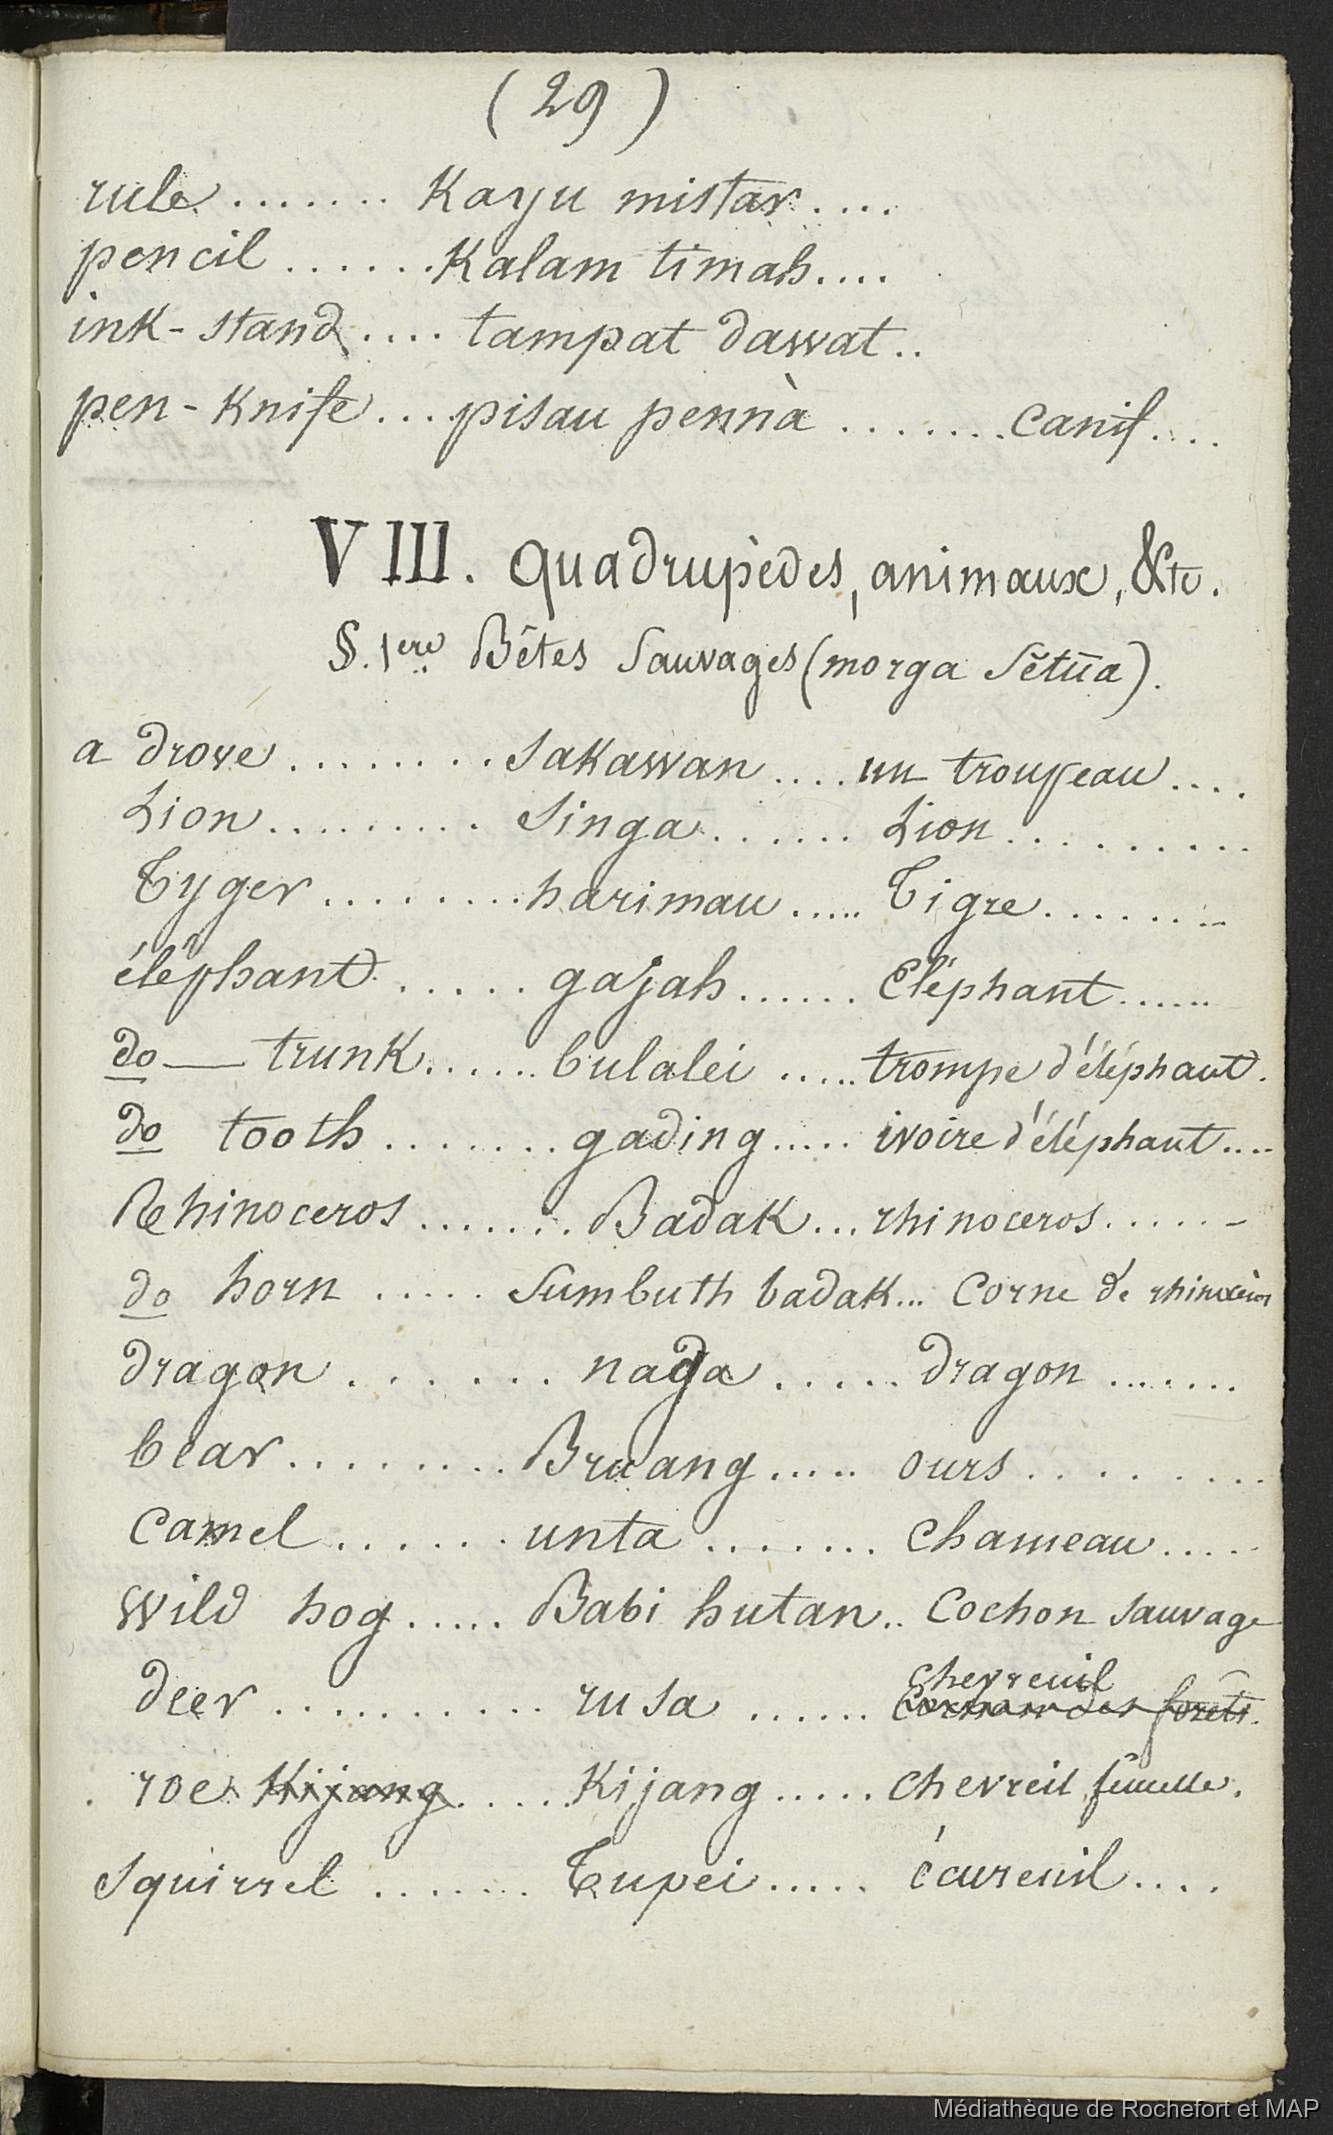 ( 29 )
rule ....... Kayu mistar ....
pencil ...... Kalam timah ....
ink-stand .... tampat dawat ..
pen-Knife ... pisau pennà ....... canif ....
VIII. Quadrupèdes, animaux, &tc.
§. 1ere Bêtes Sauvages (morga sětūa).
a drove ........ sakawan .... un troupeau ....
Lion ......... Singa ...... Lion .........
Tyger ........ harimau ..... Tigre .......
éléphant ...... gajah ...... Eléphant ......
do — trunk ...... bulalei ..... trompe d'éléphant.
do tooth ....... gading ..... ivoire d'éléphant ....
Rhinoceros ....... Badak ... rhinoceros ......
do horn ..... Sumbuth badak ... Corne de
dragon ...... naga ..... dragon .......
bear ........ Bruang ..... ours .........
Camel ...... unta ....... Chameau .....
Wild hog ..... Babi hutan .. Cochon sauvage
chevreuil
deer .......... rusa ...... des forêts.
. roe Kijang ..... Kijang ..... chevreil femelle.
Squirrel ....... Tupei ..... écureuil ....
Médiathèque de Rochefort et MAP